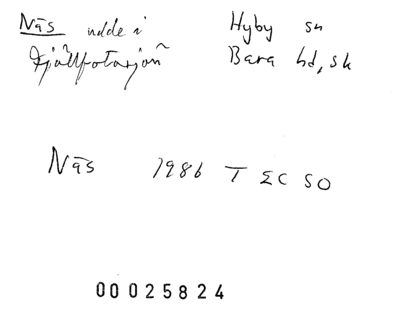 Näs udde i Hyby sn
Fjällfotasjön Bara hd, Sk
Näs 1986 T ΣC SO
00025824